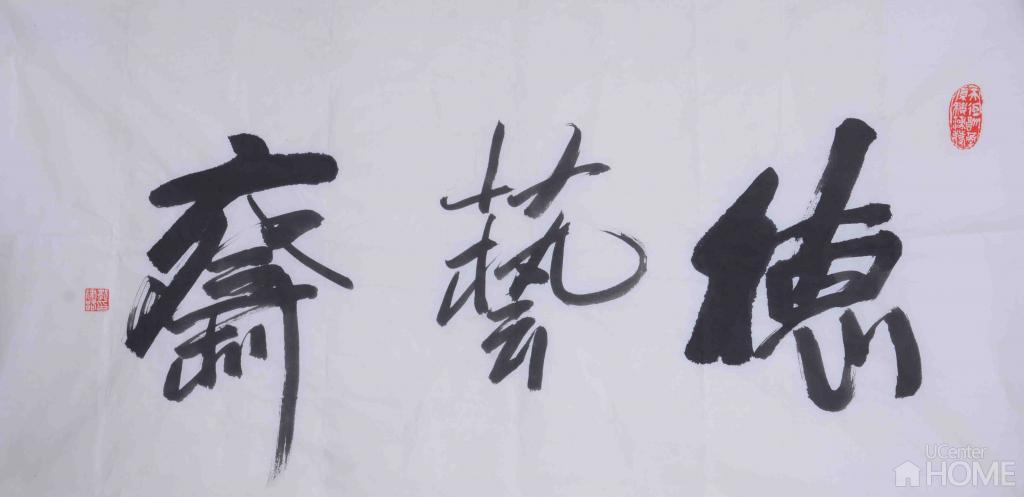 德藝齋
UCenter
HOME